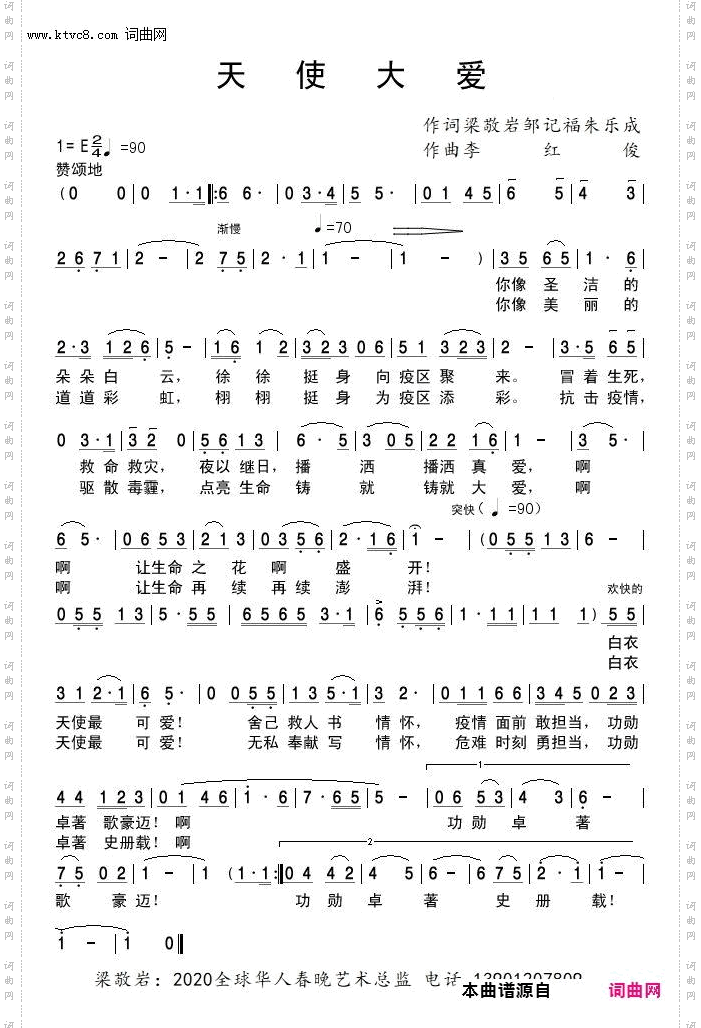 www.ktvc8.com 词曲网
天 使 大 爱
作词梁敬岩邹记福朱乐成
作曲李 红 俊
1=E 2/4 ♩=90
赞颂地
(0 0 | 0 1·1 ‖: 6 6· | 0 3·4 | 5 5· | 0 1 4 5 | 6 5 | 4 3 |
渐慢 ♩=70
2 6 7 1 | 2 - | 2 7 5 | 2· 1 | 1 - | 1 - ) | 3 5 6 5 | 1· 6 |
你像 圣 洁 的
你像 美 丽 的
2·3 1 2 6 | 5 - | 1 6 1 2 | 3 2 3 0 6 | 5 1 3 2 3 | 2 - | 3·5 6 5 |
朵朵白 云， 徐 徐 挺 身 向疫区 聚 来。 冒着生死，
道道彩 虹， 栩 栩 挺 身 为疫区 添 彩。 抗击疫情，
0 3·1 | 3 2 0 | 5 6 1 3 | 6· 5 | 3 0 5 | 2 2 1 6 | 1 - | 3 5· |
救命救灾， 夜以继日，播 洒 播洒真 爱， 啊
驱散毒霾， 点亮生命铸 就 铸就大 爱， 啊
突快( ♩=90)
6 5· | 0 6 5 3 | 2 1 2 | 0 3 5 | 3 2 | 2· 1 6 | 1 - | (0 5 5 1 3 | 6 - |
啊 让生命 之 花 啊 盛 开！
啊 让生命 再 续 再 续 澎 湃！
欢快的
0 5 5 1 3 | 5· 5 5 | 6 5 6 5 3·1 | 6 5 5 6 | 1· 1 1 | 1 1 1) | 5 5 |
白衣
白衣
3 1 2·1 | 6 5· | 0 0 5 5 | 1 1 3·5 | 3 2· | 0 1 1 6 | 5 6 6 | 3 4 5 0 2 3 |
天使最 可 爱！ 舍己 救人 书 情 怀， 疫情 面前 敢担当，功勋
天使最 可 爱！ 无私 奉献 写 情 怀， 危难 时刻 勇担当，功勋
1
4 4 1 2 3 | 0 1 4 6 | 1· 6 | 7·6 5 | 5 - | 0 6 5 3 | 4 3 | 6 - |
卓著 歌豪迈！啊 功 勋 卓 著
卓著 史册载！啊
2
7 5 0 2 | 1 - | 1 (1·1 :‖ 0 4 4 2 | 0 4 5 | 6 - | 6 7 5 | 2· 1 | 1 - |
歌 豪 迈！ 功 勋 卓 著 史 册 载！
1 - | 1 0 ‖
梁敬岩：2020全球华人春晚艺术总监 电话
本曲谱源自 词曲网